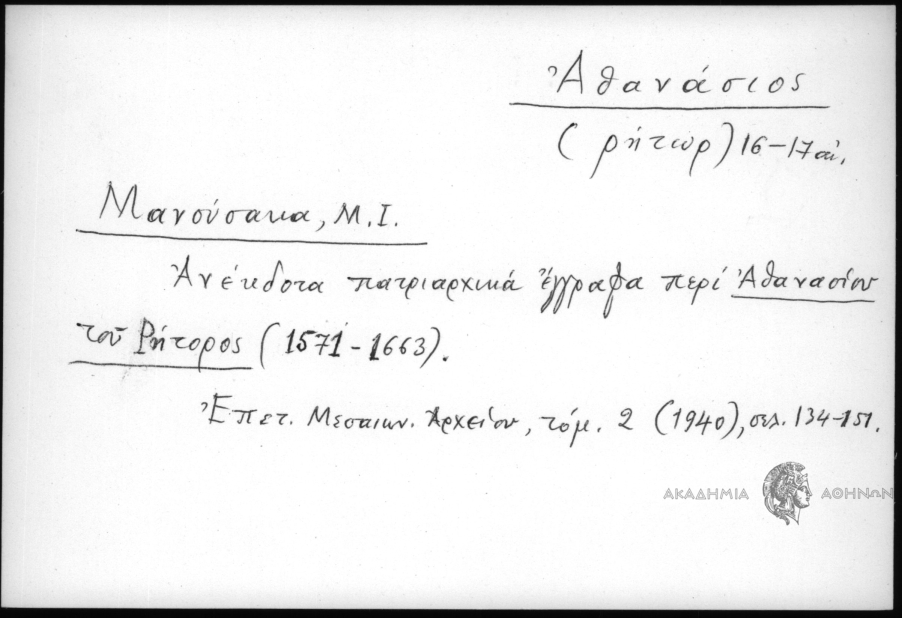 Ἀθανάσιος
(ρήτωρ) 16-17 αἰ.
Μανούσακα, Μ.Ι.
Ἀνέκδοτα πατριαρχικά ἔγγραφα περί Ἀθανασίου
τοῦ Ρήτορος (1571-1663).
Ἐπετ. Μεσαιων. Ἀρχείου, τόμ. 2 (1940), σελ. 134-151.
ΑΚΑΔΗΜΙΑ ΑΘΗΝΩΝ